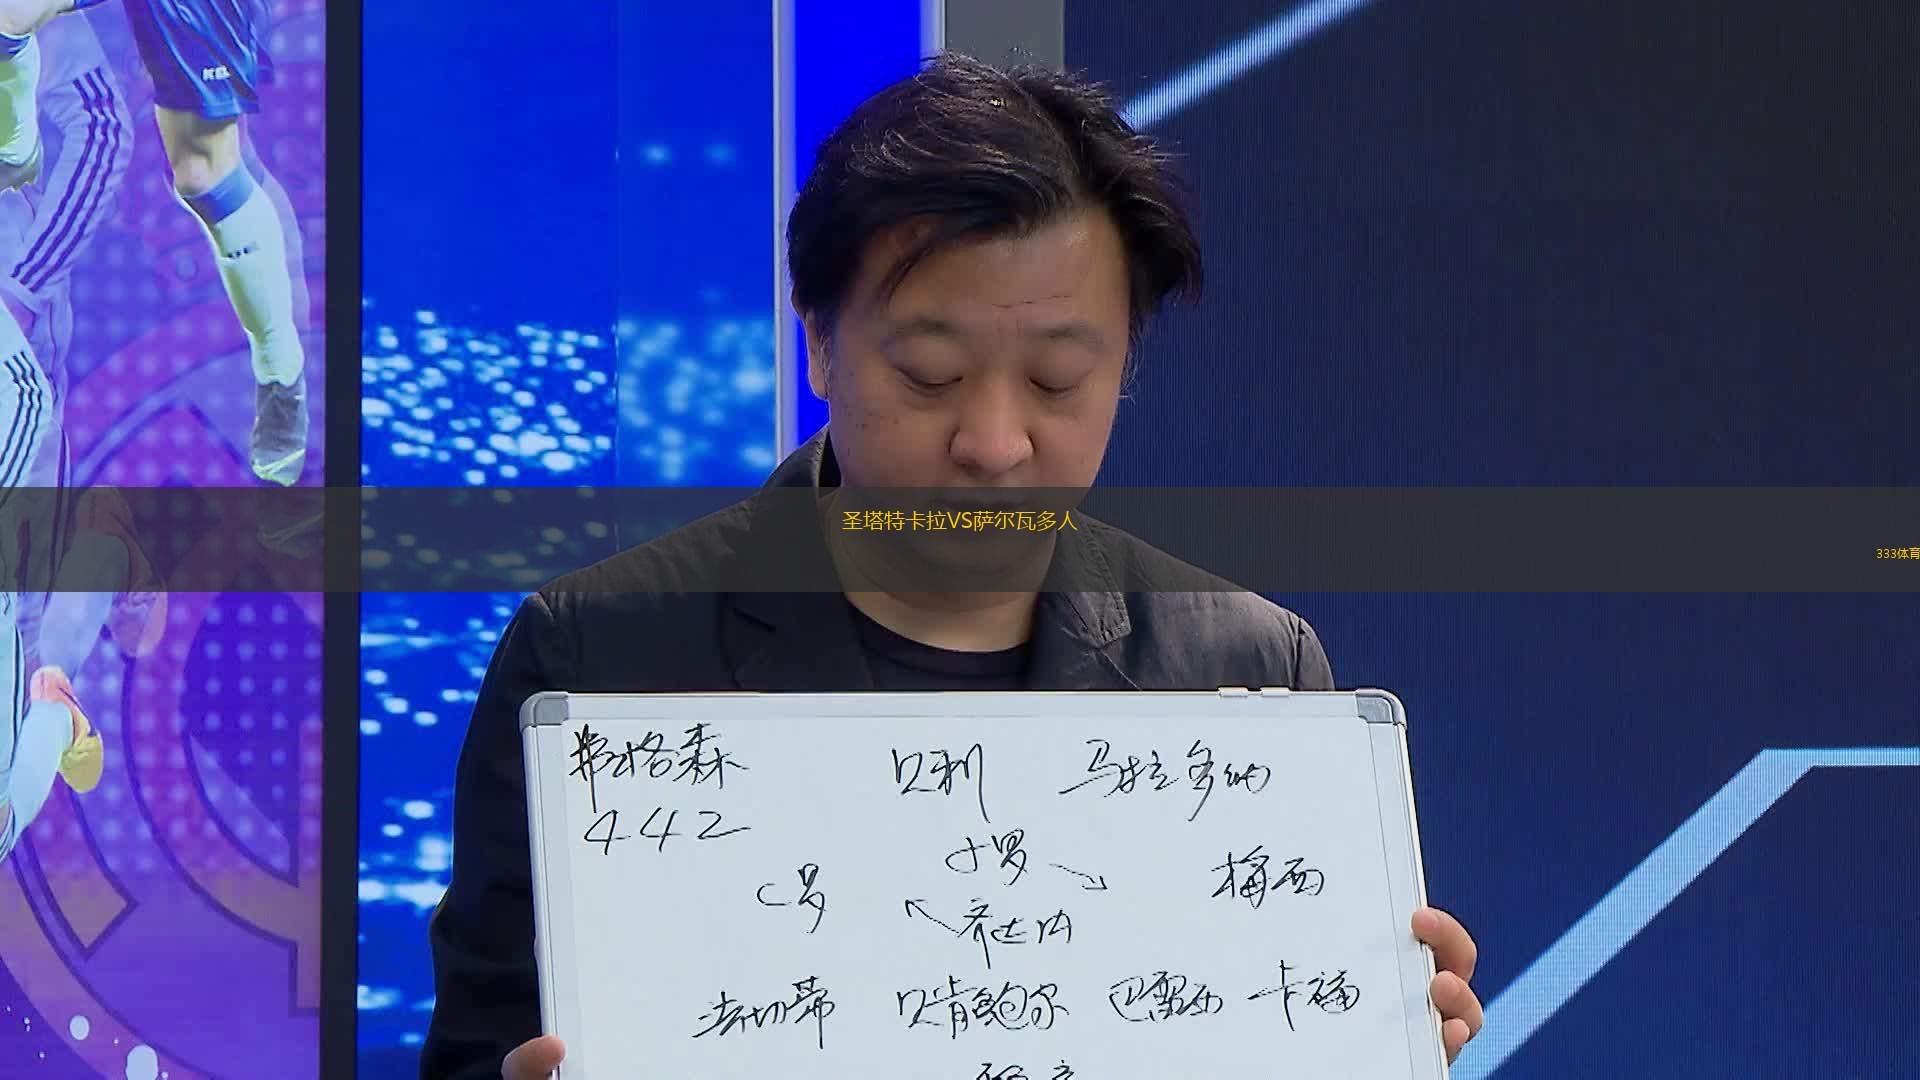 圣塔特卡拉VS萨尔瓦多人
333体育
弗格森 贝利 马拉多纳
442
小罗
C罗 梅西
齐达内
法切蒂 贝肯鲍尔 巴雷西 卡福